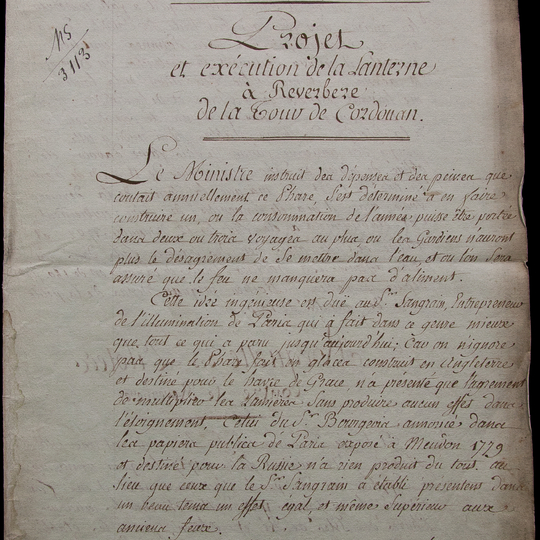 MS
3113
Projet
et exécution de la Lanterne
à Reverbere
de la Tour de Cordouan.
Le Ministre instruit des dépenses et des peines que
coutait annuellement ce Phare, s'est déterminé à en faire
construire un, ou la consommation de l'année puisse être portée
dans deux ou trois voyages au plus, ou les Gardiens n'auront
plus le désagrément de se mettre dans l'eau, et ou l'on sera
assuré que le feu ne manquera pas d'aliment.
Cette idée ingénieuse est due au Sr. Sangrain, Entrepreneur
de l'illumination de Paris qui à fait dans ce genre mieux
que tout ce qui a paru jusqu'aujourd'hui; Car on n'ignore
pas que le Phare fait en glaces construit en Angleterre
et destiné pour le havre de Grace n'a présenté que l'agrément
de multiplier les lumieres sans produire aucun effet dans
l'éloignement, Celui du Sr. Bourgeois annoncé dans
les papiers publics de Paris exposé à Meudon 1779
et destiné pour la Russie n'a rien produit du tout, au
lieu que ceux que le Sr. Sangrain à établi presentent dans
un beau tems un effet égal, et même Supérieur aux
anciens feux.